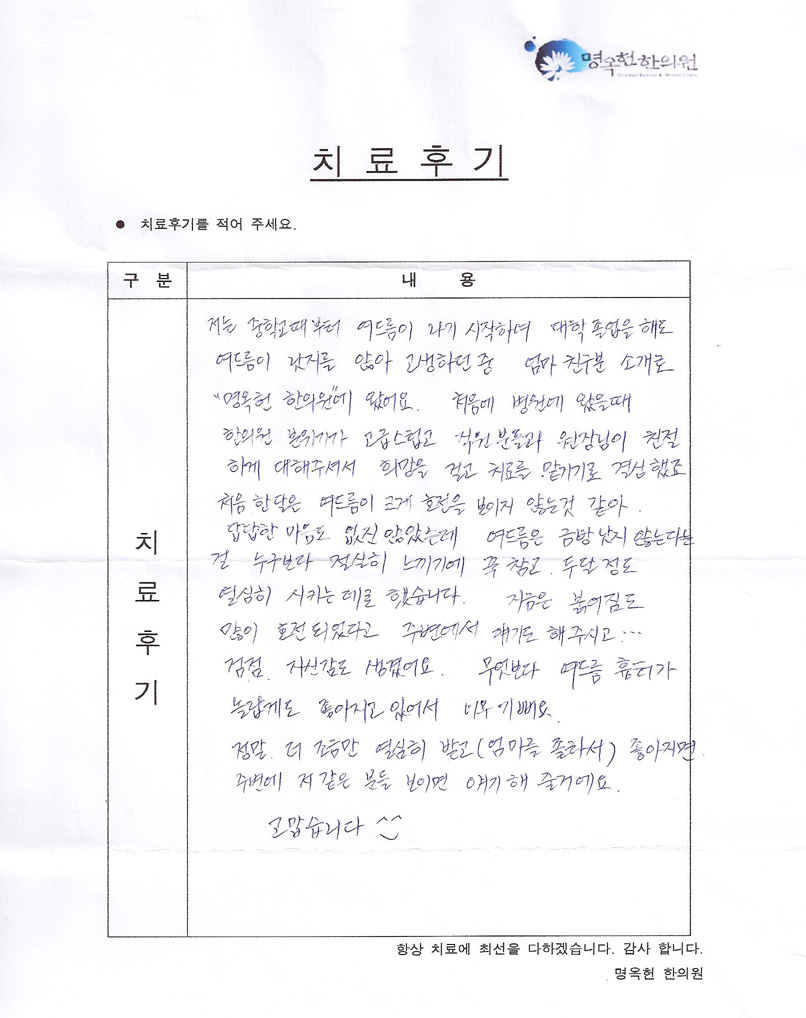 명옥헌한의원
Oriental Beauty & Mental Clinic
치 료 후 기
● 치료후기를 적어 주세요.
구 분
내 용
치
료
후
기
저는 중학교때부터 여드름이 나기 시작하여 대학 졸업을 해도
여드름이 낫지를 않아 고생하던 중 엄마 친구분 소개로
"명옥헌 한의원"에 왔어요. 처음에 병원에 왔을때
한의원 분위기가 고급스럽고 직원 분들과 원장님이 친절
하게 대해주셔서 희망을 걸고 치료를 맡기기로 결심했죠
처음 한달은 여드름이 크게 호전을 보이지 않는것 같아.
답답한 마음도 없진 않았는데 여드름은 금방 낫지 않는다는
걸 누구보다 절실히 느끼기에 꾹 참고. 두달 정도
열심히 시키는 데로 했습니다. 지금은 붉어짐도
많이 호전 되었다고 주변에서 얘기도 해주시고...
점점. 자신감도 생겼어요. 무엇보다 여드름 흉터가
놀랍게도 좋아지고 있어서 너무 기뻐요.
정말. 더 조금만 열심히 받고 (엄마를 졸라서) 좋아지면.
주변에 저 같은 분들 보이면 얘기해 줄거에요.
고맙습니다 ^^
항상 치료에 최선을 다하겠습니다. 감사 합니다.
명옥헌 한의원